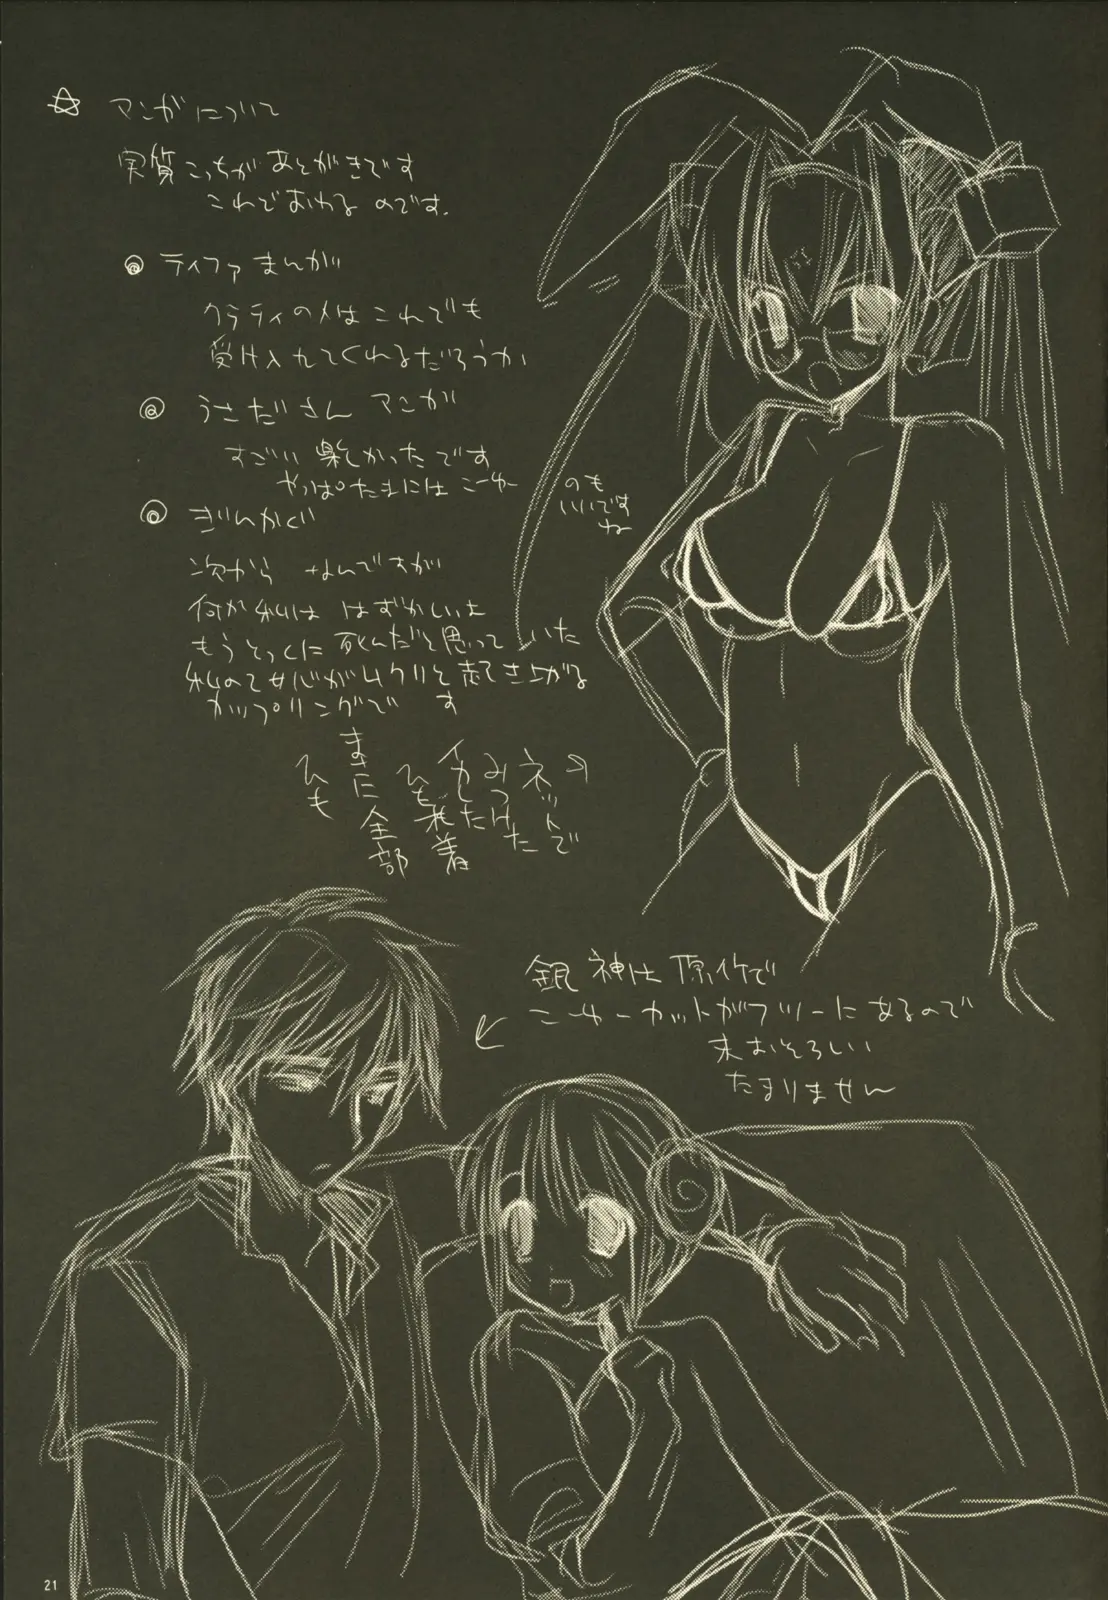 ☆ マンガについて
実質こっちがあとがきです
これでおわるのです.
◎ ティファまんが
クラティの人はこれでも
受け入れてくれるだろうか
◎ うさださん マンガ
すごい楽しかったです
やっぱたまにはこーゆー
のも
いいです
ね
◎ ぎんかぐ
次から なんですが
何か私は はずかしいよ
もうとっくに死んだと思っていた
私の乙女心がムクリと起き上がる
カップリングです
ネットで
みつけた
ひも
まに全部
銀神は原作で
こーゆーカットがフツーにあるので
末おそろしい
たまりません
21